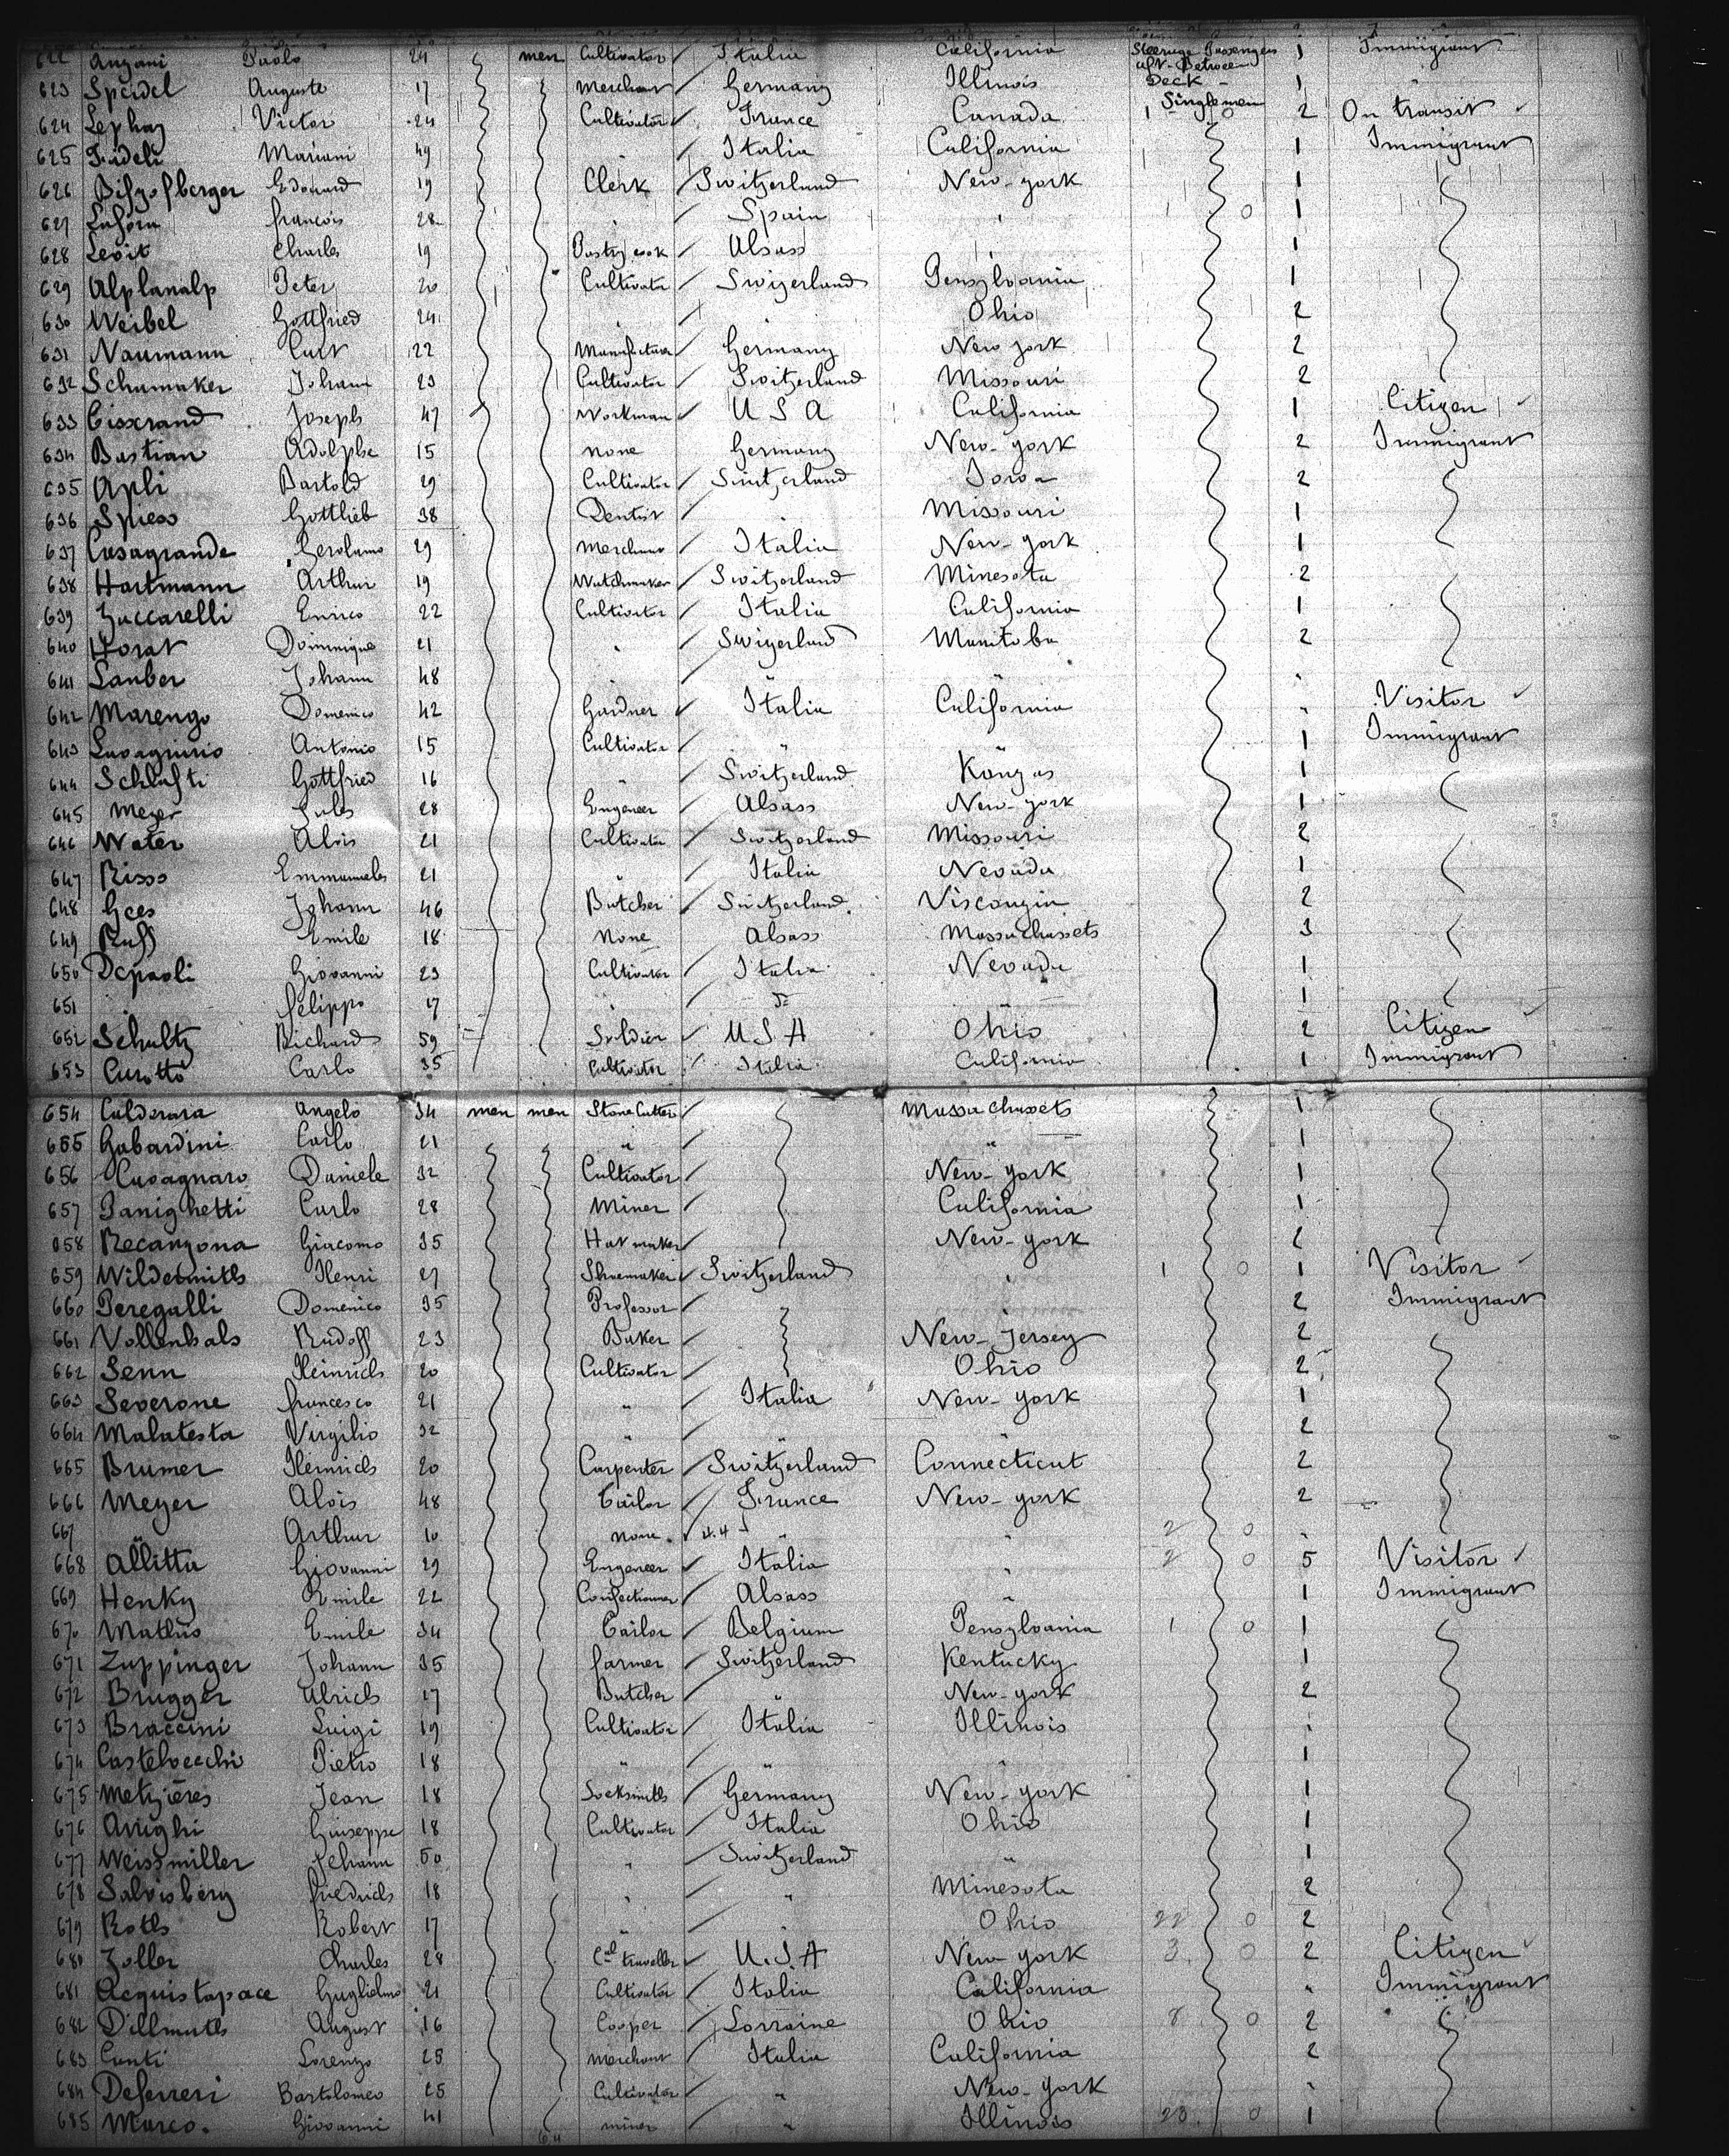 622 Angani Paolo 24 men Cultivator Italia California Steerage Passengers aft-Between Deck - Single men 1 Immigrant
623 Speidel Auguste 17 Merchant Germany Illinois 1
624 Victor 24 Cultivator France Canada 1 2 On transit
625 Fideli Mariani 49 " Italia California 1 Immigrant
626 Edouard 19 Clerk Switzerland New-york 1
627 françois 28 " Spain " 1 0 1
628 Levit Charles 19 Pastry cook Alsass " 1
629 Alplanalp Peter 20 Cultivator Swizerland Pensylvania 1
630 Weibel Gottfried 24 " " Ohio 2
631 Naumann Curt 22 Manufacturer Germany New york 2
632 Schumaker Johann 23 Cultivator Switzerland Missouri 2
633 Cisserand Joseph 47 Workman U S A California 1 Citizen
634 Bastian Adolphe 15 none Germany New-york 2 Immigrant
635 Apli Bartold 29 Cultivator Switzerland Iowa 2
636 Spiess Gottlieb 38 Dentist " Missouri 1
637 Casagrande Gerolamo 29 Merchant Italia New-york 1
638 Hartmann Arthur 19 Watchmaker Switzerland Minesota 2
639 Zuccarelli Enrico 22 Cultivator Italia California 1
640 Horat Dominique 21 " Swizerland Manitoba 2
641 Lauber Johann 48 " " "
642 Marengo Domenico 42 Gardner Italia California " Visitor
643 Antonio 15 Cultivator " " 1 Immigrant
644 Schlafti Gottfried 16 " Switzerland Kanzas 1
645 Meyer Jules 28 Engeneer Alsass New-york 1
646 Water Alois 21 Cultivator Switzerland Missouri 2
647 Risso Emmanuele 21 " Italia Nevada 1
648 Gees Johann 46 Butcher Switzerland Visconzin 2
649 Ruff Emile 18 None Alsass Massachussets 3
650 Depaoli Giovanni 23 Cultivator Italia Nevada 1
651 " felippo 17 " " 1
652 Schultz Richard 59 Soldier U S A Ohio 2 Citizen
653 Curotto Carlo 35 Cultivator Italia California 1 Immigrant
654 Calderara Angelo 34 men men Stone Cutter Massachusets 1
655 Gabardini Carlo 21 " " 1
656 Casagnaro Daniele 32 Cultivator New-york 1
657 Panighetti Carlo 28 Miner California 1
658 Recanzona Giacomo 35 Hat maker New-york 2
659 Wildesmith Henri 27 Shoemaker Switzerland " 1 0 1 Visitor
660 Peregalli Domenico 35 Professor " 2 Immigrant
661 Vollenhals Rudolf 23 Baker New-Jersey 2
662 Senn Heinrich 20 Cultivator Ohio 2
663 Severone francesco 21 " Italia New-york 1
664 Malatesta Virgilio 32 " " " 2
665 Brumer Heinrich 20 Carpenter Switzerland Connecticut 2
666 Meyer Alois 48 Tailor France New-york 2
667 " Arthur 10 none " " 2 0 "
668 Allitta Giovanni 29 Engeneer Italia " 2 0 5 Visitor
669 Henky Emile 22 Confectionner Alsass " 1 Immigrant
670 Mathis Emile 34 Tailor Belgium Pensylvania 1 0 1
671 Zuppinger Johann 35 farmer Switzerland Kentucky 1
672 Brugger Ulrich 17 Butcher " New-york 2
673 Braccini Luigi 19 Cultivator Italia Illinois 1
674 Castelvecchi Pietro 18 " " " 1
675 Metzieres Jean 18 Locksmith Germany New-york 1
676 Arrighi Giuseppe 18 Cultivator Italia Ohio 1
677 Weissmiller Johann 50 " Switzerland " 1
678 Salvisberg friedrich 18 " " Minesota 2
679 Roth Robert 17 " " Ohio 22 0 2
680 Zoller Charles 28 Cal traveller U.S.A New-york 3 0 2 Citizen
681 Acquistapace Guglielmo 21 Cultivator Italia California " Immigrant
682 Dillmuth August 16 Cooper Lorraine Ohio 8 0 2
683 Conti Lorenzo 25 Merchant Italia California 2
684 Deferreri Bartolomeo 25 Cultivator " New-york "
685 Marco. Giovanni 41 miner " Illinois 23 0 1